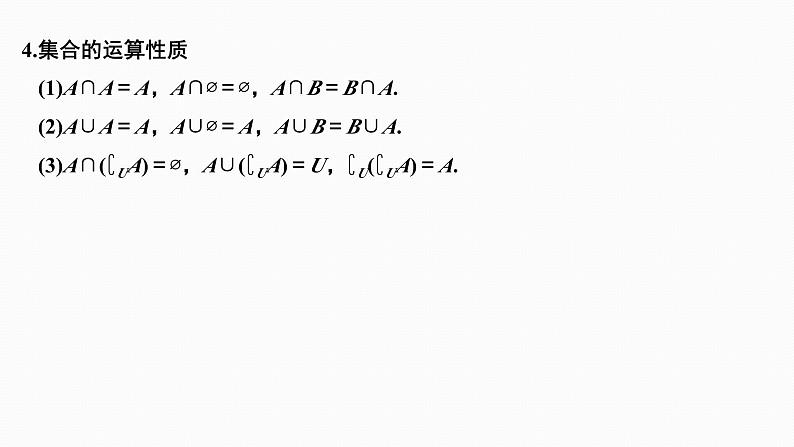 4.集合的运算性质
(1)A∩A=A，A∩∅=∅，A∩B=B∩A.
(2)A∪A=A，A∪∅=A，A∪B=B∪A.
(3)A∩(∁UA)=∅，A∪(∁UA)=U，∁U(∁UA)=A.